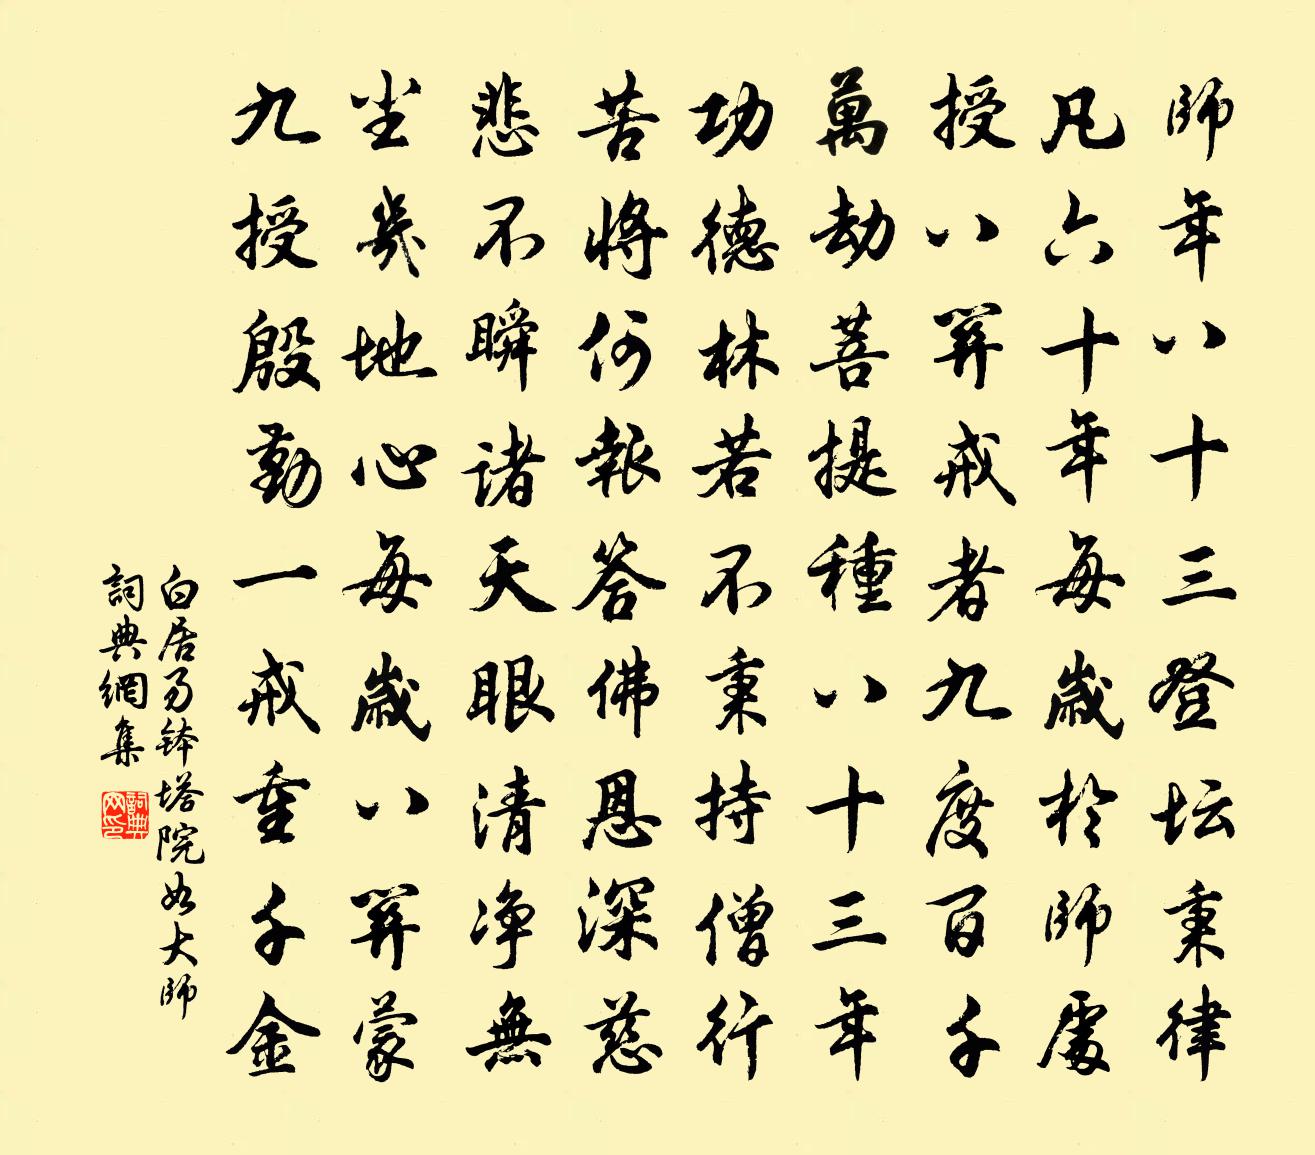 師年八十三登坛秉律
凡六十年每歲於師處
授八關戒者九度百千
萬劫菩提種八十三年
功德林若不秉持僧行
苦將何報答佛恩深慈
悲不瞬諸天眼清净無
尘幾地心每歲八關蒙
九授殷勤一戒重千金
白居易钵塔院如大師
詞典網集
詞典
网印